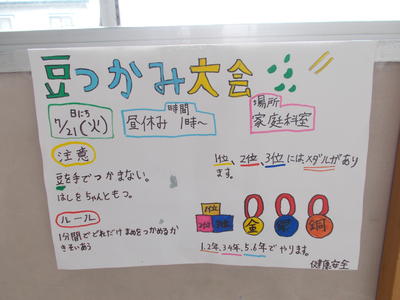 豆つかみ大会
日にち
7/21(火)
時間
昼休み 1時〜
場所
家庭科室
注意
豆を手でつかまない。
はしをちゃんともつ。
ルール
1分間でどれだけまめをつかめるか
きそいあう
1位、2位、3位にはメダルがあり
ます。
1位
2位
3位
金
銀
銅
1.2年、3.4年、5.6年でやります。
健康安全